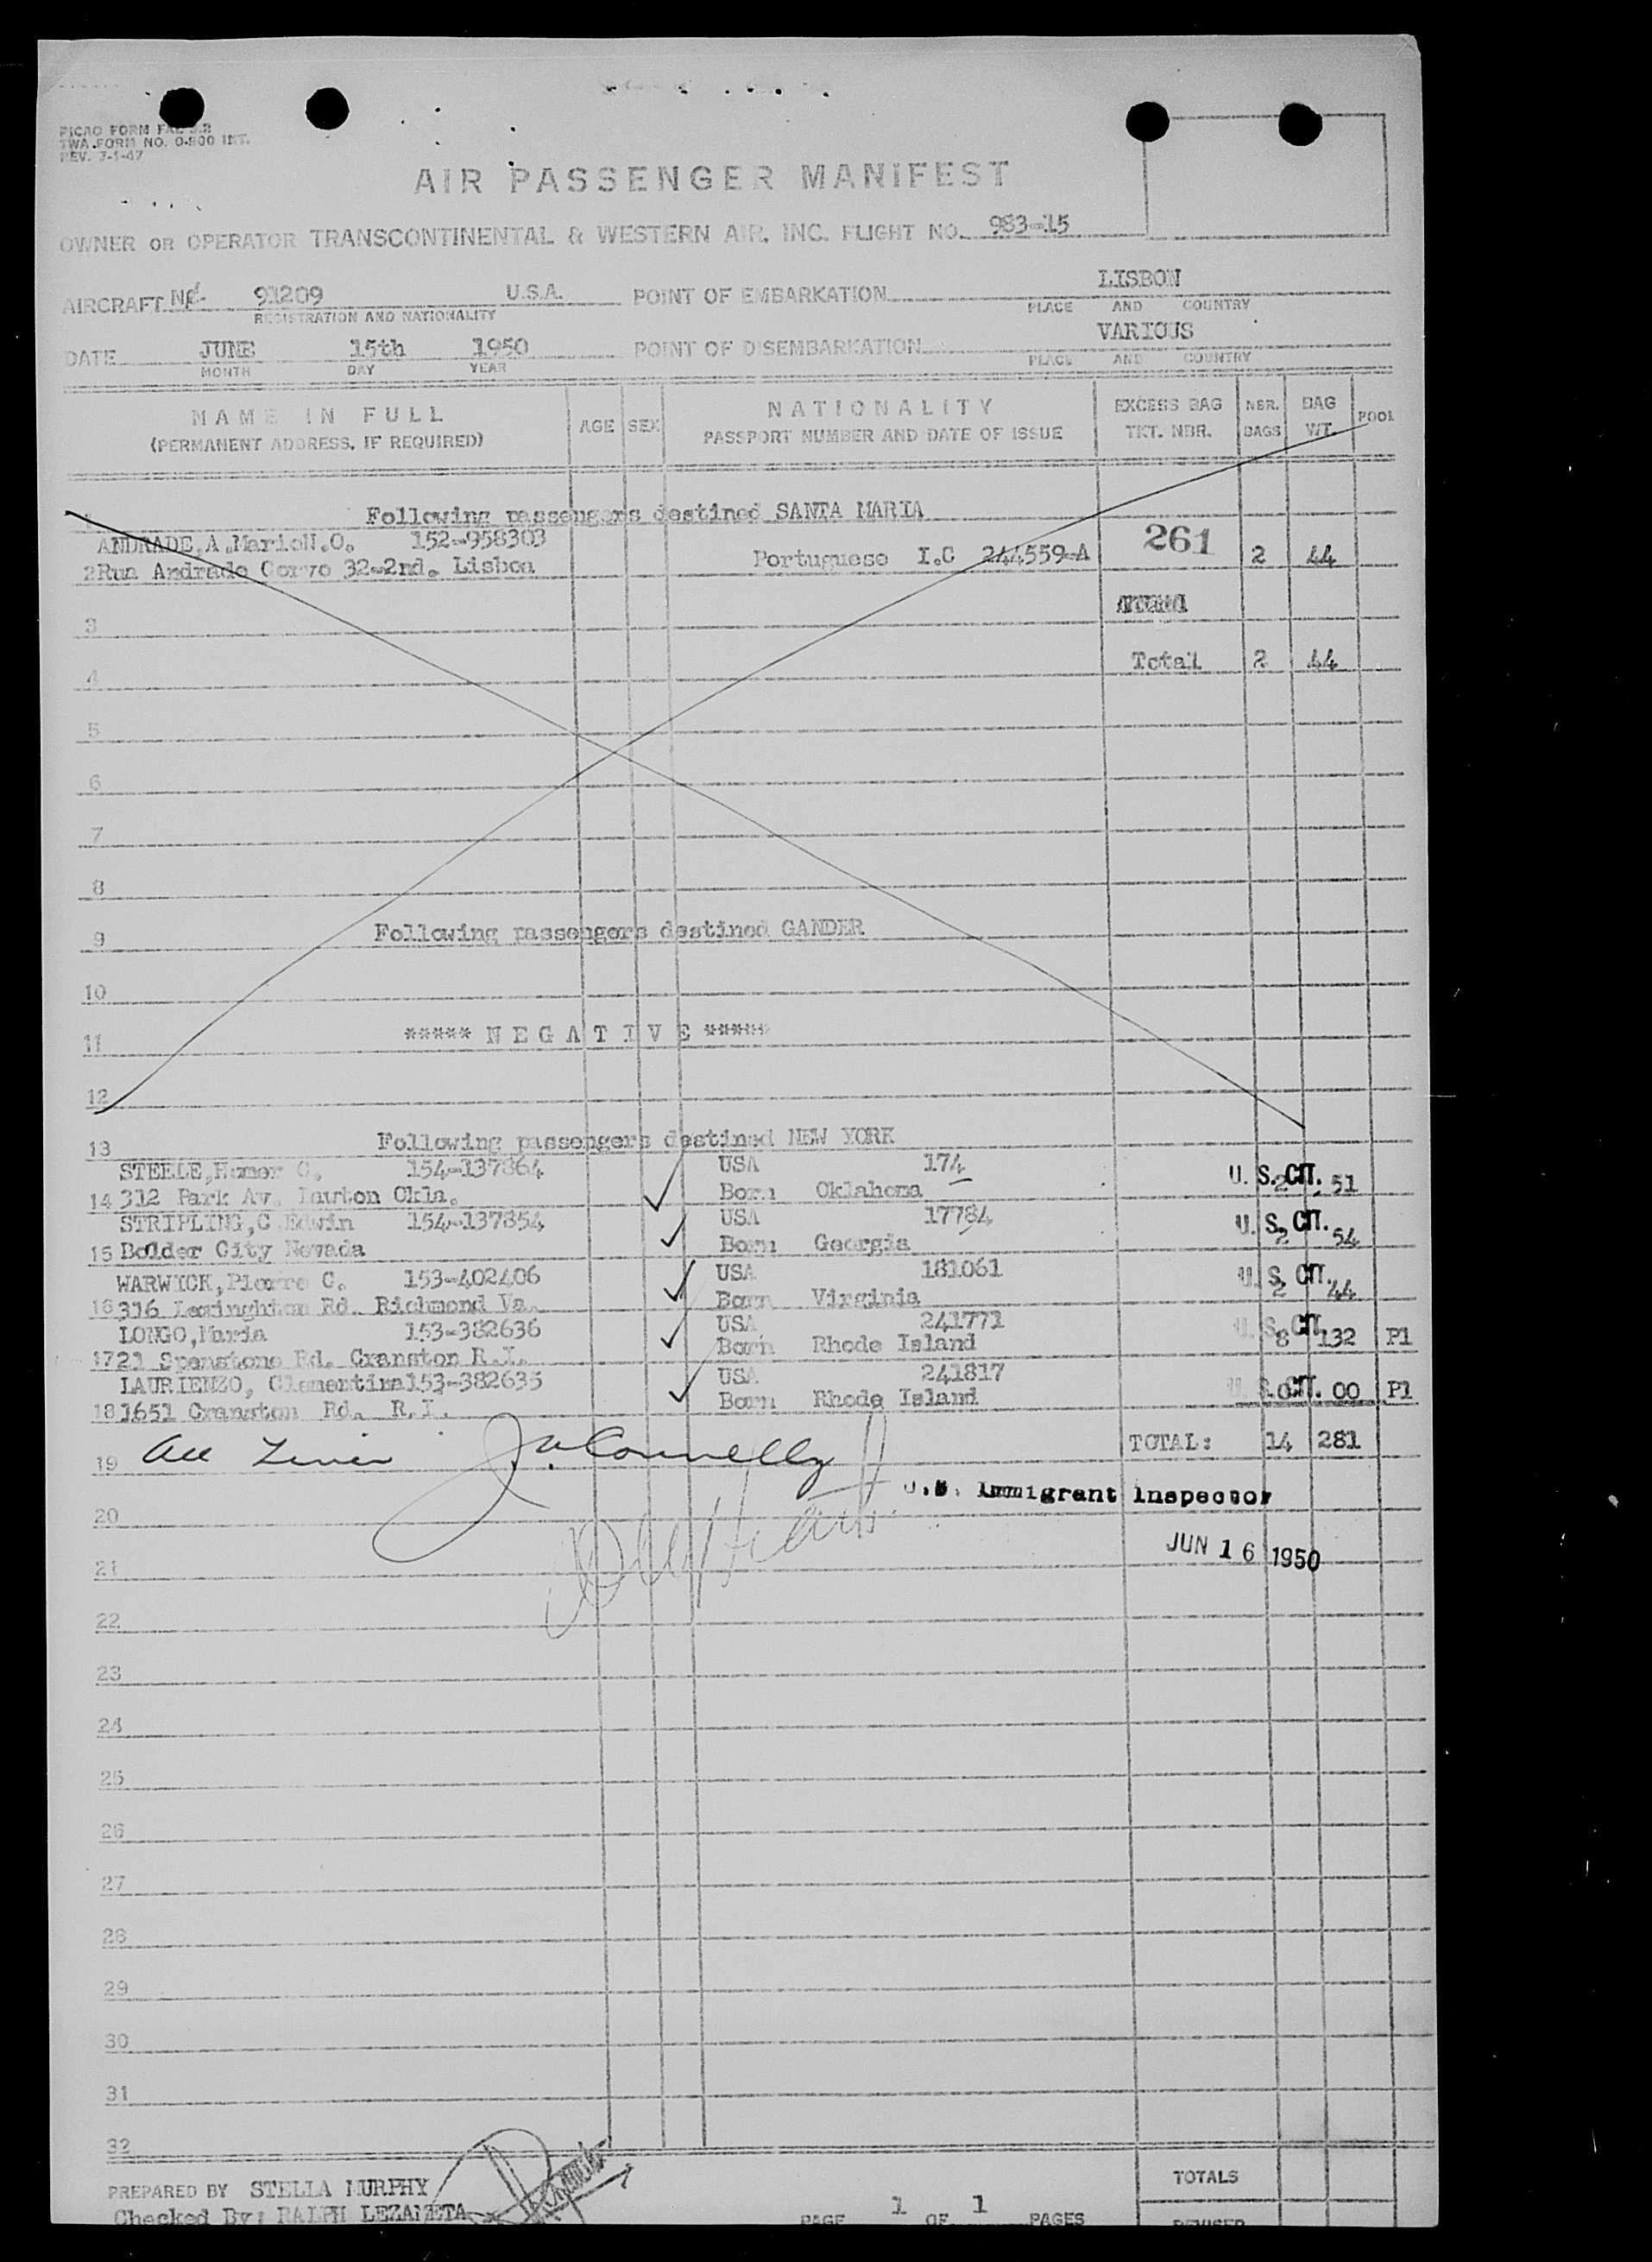 PICAO FORM FAL 3.2
TWA FORM NO. O-800 INT.
REV. 7-1-47
AIR PASSENGER MANIFEST
OWNER OR OPERATOR TRANSCONTINENTAL & WESTERN AIR, INC. FLIGHT NO. 983-15
AIRCRAFT 91209 U.S.A. POINT OF EMBARKATION LISBON
REGISTRATION AND NATIONALITY PLACE AND COUNTRY
DATE JUNE 15th 1950 POINT OF DISEMBARKATION VARIOUS
MONTH DAY YEAR PLACE AND COUNTRY
NAME IN FULL AGE SEX NATIONALITY EXCESS BAG NBR. BAG POOL
(PERMANENT ADDRESS, IF REQUIRED) PASSPORT NUMBER AND DATE OF ISSUE TKT. NBR. BAGS WT.
1 Following passengers destined SANTA MARIA
ANDRADE,A.MarioN.O. 152-958303 261
2 Rua Andrade Corvo 32-2nd. Lisboa Portuguese I.C 244559-A 2 44
3
4 Total 2 44
5
6
7
8
9 Following passengers destined GANDER
10
11 ***** N E G A T I V E *****
12
13 Following passengers destined NEW YORK
STEELE,Homer C. 154-137864 USA 174 U. S. CIT.
14 312 Park Av. Lawton Okla. Born Oklahoma 2 51
STRIPLING,C Edwin 154-137854 USA 17784 U. S. CIT.
15 Bolder City Nevada Born Georgia 2 54
WARWICK,Pierre C. 153-402406 USA 181061 U. S. CIT.
16 316 Lexinghton Rd. Richmond Va. Born Virginia 2 44
LONGO,Maria 153-382636 USA 241771 U. S. CIT.
17 21 Spenstone Rd. Cranston R.I. Born Rhode Island 8 132 Pl
LAURIENZO, Clementina 153-382635 USA 241817 U. S. CIT.
18 1651 Cranston Rd. R.I. Born Rhode Island 0 00 Pl
19 All J. Connelly TOTAL: 14 281
U.S. Immigrant Inspector
20
JUN 16 1950
21
22
23
24
25
26
27
28
29
30
31
32
PREPARED BY STELLA MURPHY TOTALS
Checked By: RALPH LEZAMETA PAGE 1 OF 1 PAGES REVISED